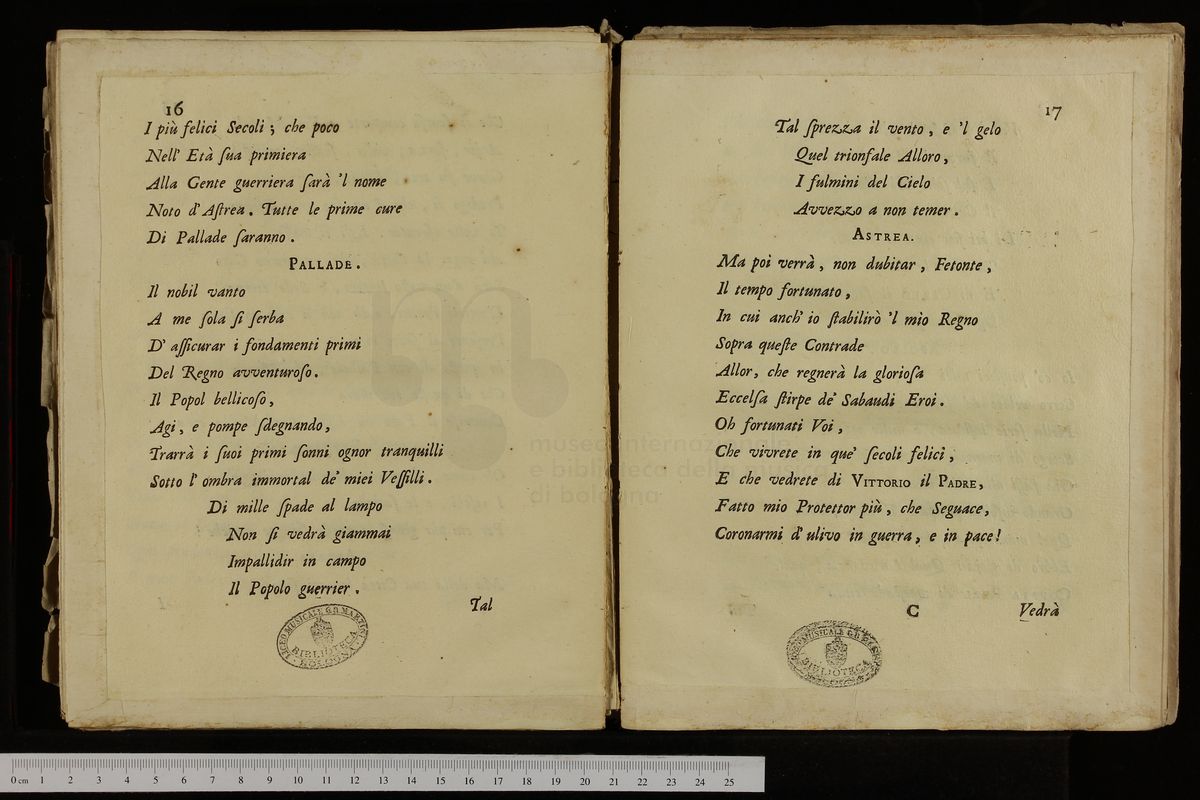 16
I più felici Secoli; che poco
Nell' Età ſua primiera
Alla Gente guerriera ſarà 'l nome
Noto d'Aſtrea. Tutte le prime cure
Di Pallade ſaranno.
PALLADE.
Il nobil vanto
A me ſola ſi ſerba
D' aſſicurar i fondamenti primi
Del Regno avventuroſo.
Il Popol bellicoſo,
Agi, e pompe ſdegnando,
Trarrà i ſuoi primi ſonni ognor tranquilli
Sotto l' ombra immortal de' miei Veſſilli.
Di mille ſpade al lampo
Non ſi vedrà giammai
Impallidir in campo
Il Popolo guerrier.
Tal
LICEO MUSICALE G.B. MARTINI
BIBLIOTECA
BOLOGNA
17
Tal ſprezza il vento, e 'l gelo
Quel trionfale Alloro,
I fulmini del Cielo
Avvezzo a non temer.
ASTREA.
Ma poi verrà, non dubitar, Fetonte,
Il tempo fortunato,
In cui anch' io ſtabilirò 'l mio Regno
Sopra queſte Contrade
Allor, che regnerà la glorioſa
Eccelſa ſtirpe de' Sabaudi Eroi.
Oh fortunati Voi,
Che vivrete in que' ſecoli felici,
E che vedrete di VITTORIO il PADRE,
Fatto mio Protettor più, che Seguace,
Coronarmi d' ulivo in guerra, e in pace!
C
Vedrà
BIBLIOTECA
museo internazionale
e biblioteca della musica
di bologna
0 cm 1 2 3 4 5 6 7 8 9 10 11 12 13 14 15 16 17 18 19 20 21 22 23 24 25